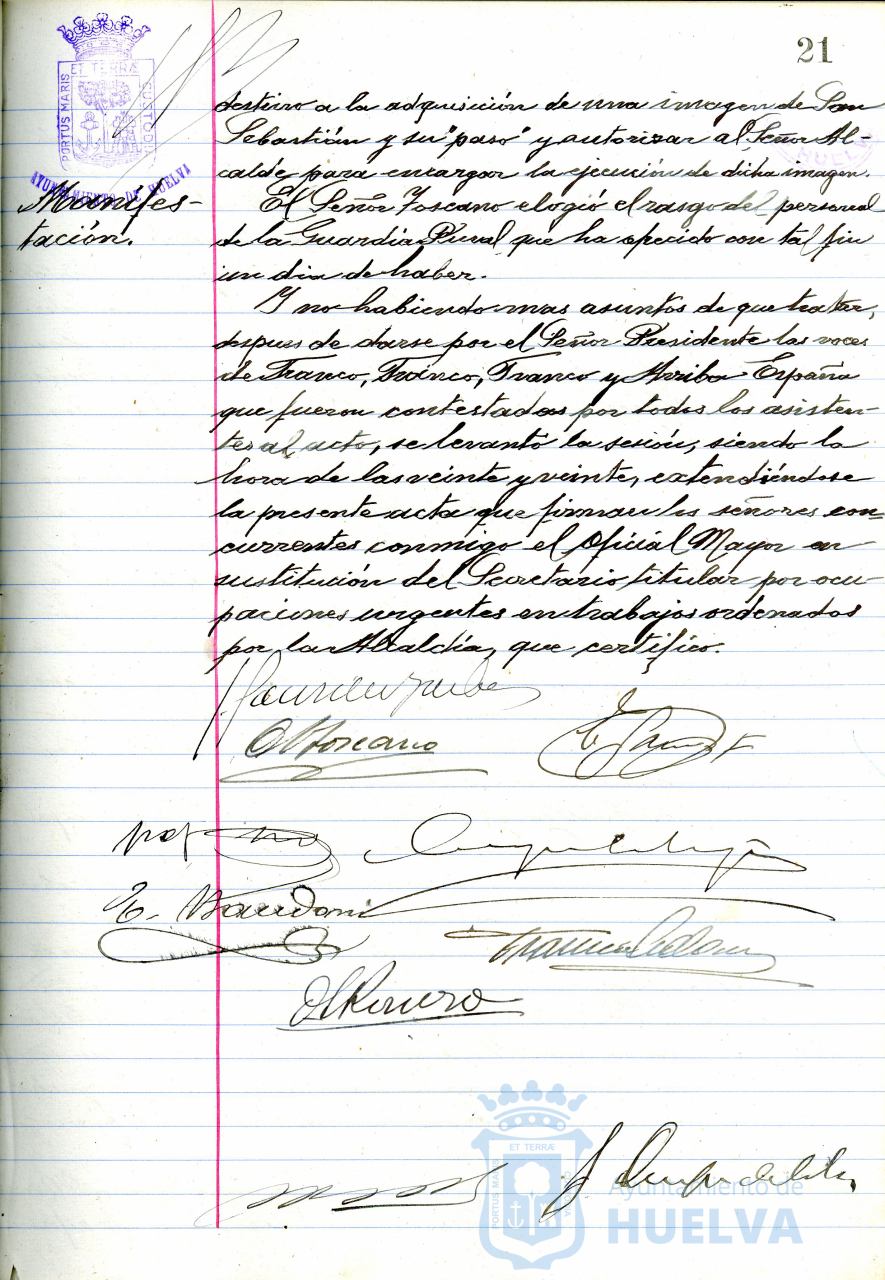 21
ET TERRÆ
PORTUS MARIS
CUSTODIA
AYUNTAMIENTO DE HUELVA
HUELVA
Manifes-
tación.
destino a la adquisición de una imagen de San
Sebastián y su "paso" y autorizar al Señor Al-
calde para encargar la ejecución de dicha imagen.
El Señor Toscano elogió el rasgo del personal
de la Guardia Rural que ha ofrecido con tal fin
un dia de haber.
Y no habiendo mas asuntos de que tratar,
despues de darse por el Señor Presidente las voces
de Franco, Franco, Franco y Arriba España
que fueron contestadas por todos los asisten-
tes al acto, se levantó la sesión, siendo la
hora de las veinte y veinte, extendiéndose
la presente acta que firman los señores con-
currentes conmigo el Oficial Mayor en
sustitución del Secretario titular por ocu-
paciones urgentes en trabajos ordenados
por la Alcaldía, que certifico.
Toscano
ET TERRÆ
PORTUS MARIS
Ayuntamiento de
HUELVA